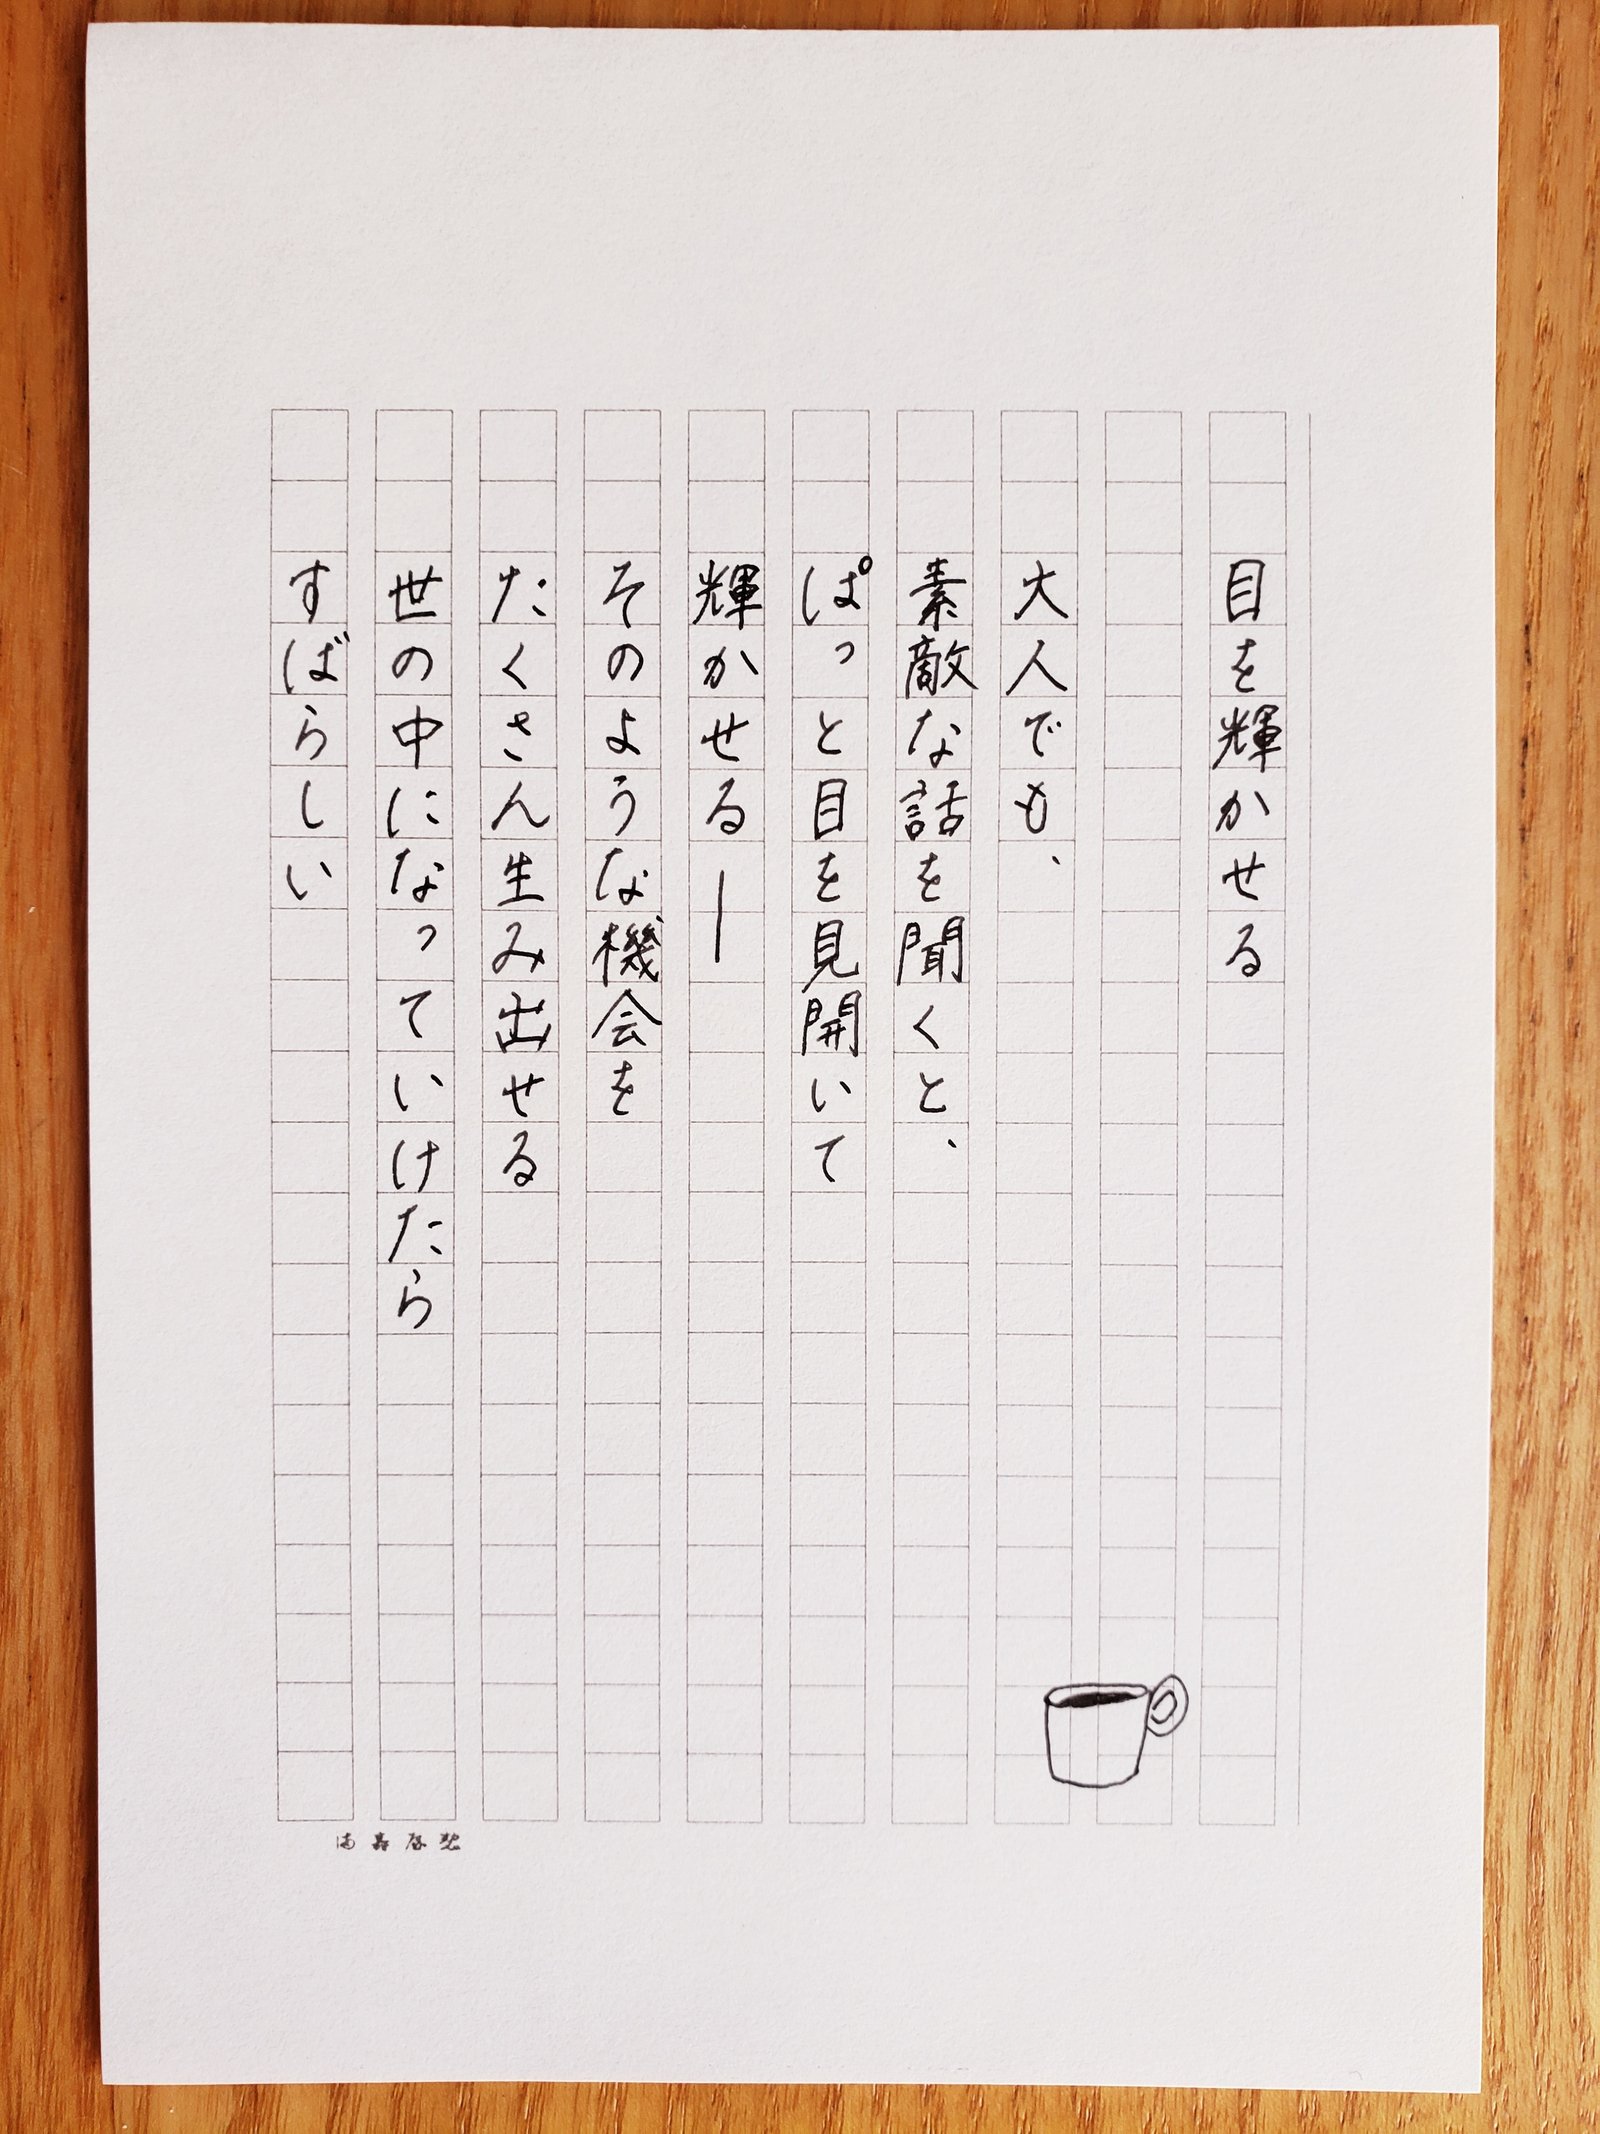 目を輝かせる
大人でも、
素敵な話を聞くと、
ぱっと目を見開いて
輝かせる―
そのような機会を
たくさん生み出せる
世の中になっていけたら
すばらしい